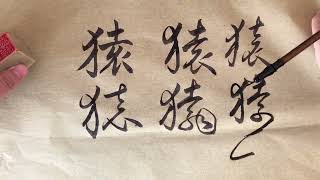 猿猿猿
猿猿猿